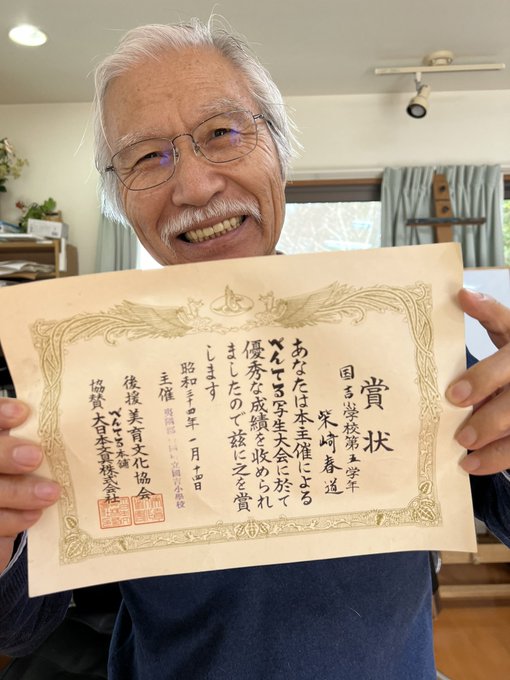 賞状
国吉学校第五学年
柴崎春道
あなたは本主催による
ぺんてる写生大会に於て
優秀な成績を収められ
ましたので玆に之を賞
します
昭和三十四年一月十四日
主催
立國吉小學校
後援 美育文化協会
ぺんてる本舗
協賛 大日本文具株式会社